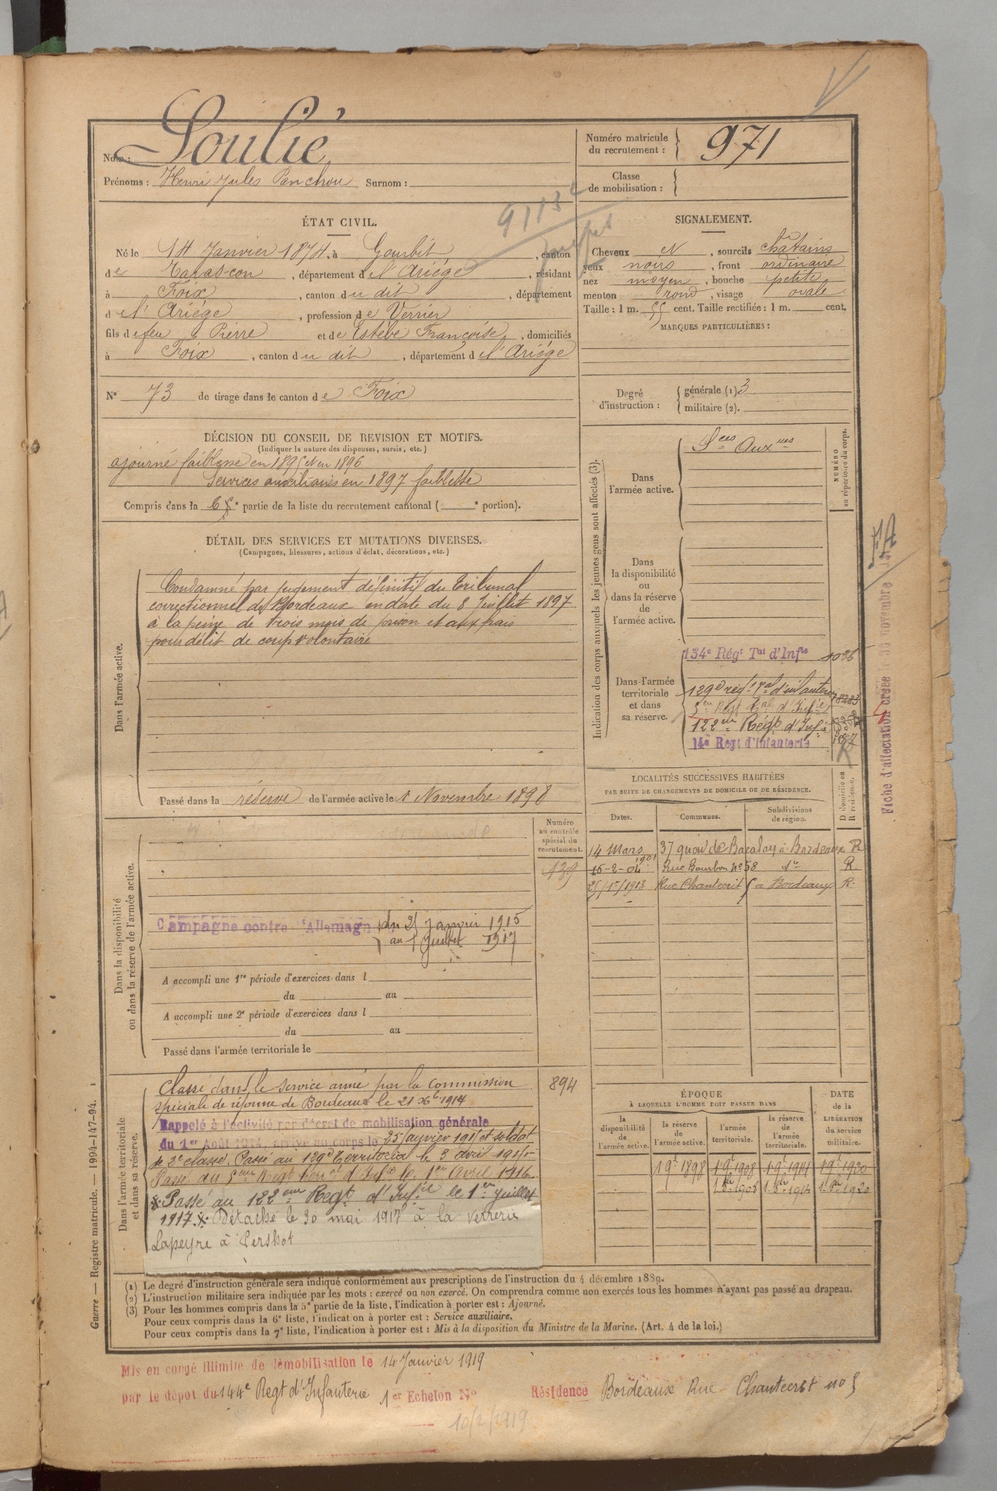 Nom : Soulié
Prénoms : Henri Jules Surnom :
Numéro matricule du recrutement : 971
Classe de mobilisation :
ÉTAT CIVIL.
Né le 14 Janvier 1874, à Gourbit, canton
de Tarascon, département de l'Ariège, résidant
à Foix, canton du dit, département
d l'Ariège, profession de Verrier
fils de feu Pierre et de Estèbe Françoise, domiciliés
à Foix, canton du dit, département d l'Ariège
N° 73 de tirage dans le canton de Foix
SIGNALEMENT.
Cheveux N, sourcils châtains
yeux noirs, front ordinaire
nez moyen, bouche petite
menton rond, visage ovale
Taille : 1 m. 55 cent. Taille rectifiée : 1 m. cent.
MARQUES PARTICULIÈRES :
Degré d'instruction : générale (1) 3
militaire (2).
DÉCISION DU CONSEIL DE REVISION ET MOTIFS.
(Indiquer la nature des dispenses, sursis, etc.)
ajourné faiblesse en 1895 et en 1896
Services auxiliaires en 1897 faiblesse
Compris dans la 6e partie de la liste du recrutement cantonal ( e portion).
DÉTAIL DES SERVICES ET MUTATIONS DIVERSES.
(Campagnes, blessures, actions d'éclat, décorations, etc.)
Dans l'armée active.
Condamné par jugement définitif du Tribunal
correctionnel de Bordeaux en date du 8 Juillet 1897
à la peine de trois mois de prison et aux frais
pour délit de coups volontaire
Passé dans la réserve de l'armée active le 1 Novembre 1898
Indication des corps auxquels les jeunes gens sont affectés (3).
NUMÉRO au répertoire du corps.
Dans l'armée active.
Sces Auxres
Dans la disponibilité ou dans la réserve de l'armée active.
Dans l'armée territoriale et dans sa réserve.
134e Régt Tal d'Infie
129e rég. Tal d'infanterie
122eme Régt d'Infie
14e Régt d'Infanterie
Fiche d'affectation créée
LOCALITÉS SUCCESSIVES HABITÉES
PAR SUITE DE CHANGEMENTS DE DOMICILE OU DE RÉSIDENCE.
Dates. Communes. Subdivisions de région. D domicile ou R résidence.
14 Mars 1901 37 quai de Bacalan à Bordeaux R
Rue Bourbon N° 58 do R.
Rue Chantecrit 5 à Bordeaux R.
Dans la disponibilité ou dans la réserve de l'armée active.
Numéro au contrôle spécial du recrutement.
139
Campagne contre l'Allemagne du 25 Janvier 1915
au 1 Juillet 1917
A accompli une 1re période d'exercices dans l
du au
A accompli une 2e période d'exercices dans l
du au
Passé dans l'armée territoriale le
Dans l'armée territoriale et dans sa réserve.
894
Classé dans le service armé par la commission
spéciale de réforme de Bordeaux le 21 Xbre 1914
Rappelé à l'activité par décret de mobilisation générale
du 1er Août 1914, arrivé au corps le 25 Janvier 1915 et soldat
de 2e classe. Passé au 129e Territorial le 3 Avril 1915
Passé au 122eme Régt d'Infie le 1er Juillet
1917. Détaché le 30 mai 1917 à la verrerie
Lapeyre à
ÉPOQUE
À LAQUELLE L'HOMME DOIT PASSER DANS
la disponibilité de l'armée active. la réserve de l'armée active. l'armée territoriale. la réserve de l'armée territoriale. DATE de la LIBÉRATION du service militaire.
1 9bre 1898 1 9bre 1908 1 9bre 1914 1 9bre 1920
(1) Le degré d'instruction générale sera indiqué conformément aux prescriptions de l'instruction du 4 décembre 1889.
(2) L'instruction militaire sera indiquée par les mots : exercé ou non exercé. On comprendra comme non exercés tous les hommes n'ayant pas passé au drapeau.
(3) Pour les hommes compris dans la 5e partie de la liste, l'indication à porter est : Ajourné.
Pour ceux compris dans la 6e liste, l'indication à porter est : Service auxiliaire.
Pour ceux compris dans la 7e liste, l'indication à porter est : Mis à la disposition du Ministre de la Marine. (Art. 4 de la loi.)
Guerre. — Registre matricule. — 1994-147-94.
Mis en congé illimité de démobilisation le 14 Janvier 1919
par le dépôt du 144e Régt d'Infanterie 1er Echelon N° Résidence Bordeaux Rue Chantecrit no 5
10/2/1919